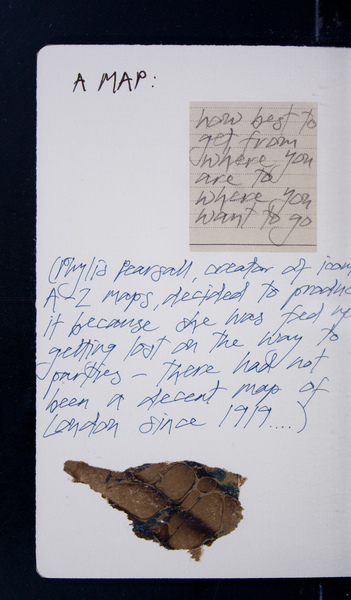 A MAP:
how best to
get from
where you
are to
where you
want to go
(Phyllis Pearsall, creator of icon
A-Z maps, decided to produc
it because she was fed
getting lost on the way to
parties – there had not
been a decent map of
London since 1919....)